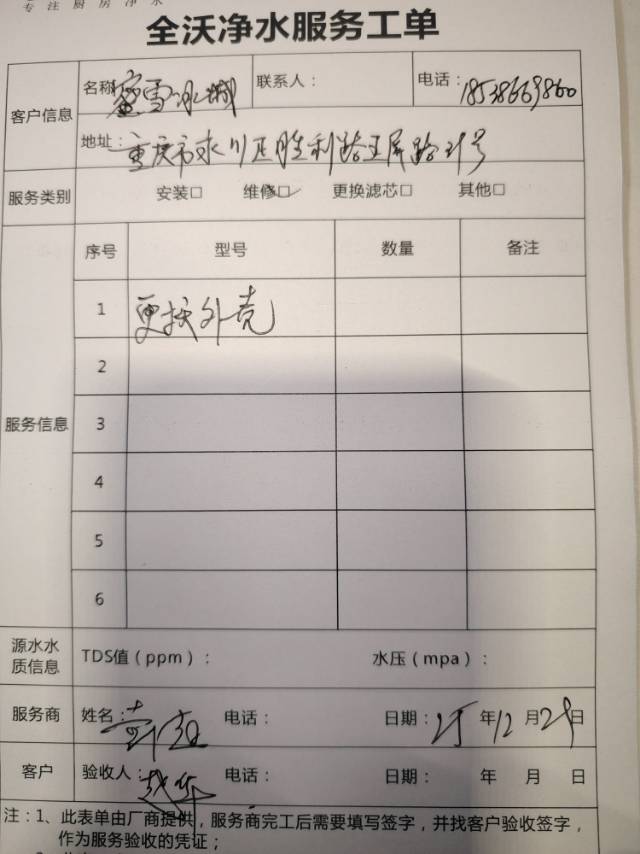 专注厨房净水
全沃净水服务工单
客户信息
名称 蜜雪冰城 联系人： 电话：18538669860
地址：重庆市永川区胜利路玉屏路21号
服务类别 安装□ 维修☑ 更换滤芯□ 其他□
服务信息
序号 型号 数量 备注
1 更换外壳
2
3
4
5
6
源水水质信息 TDS值（ppm）： 水压（mpa）：
服务商 姓名： 电话： 日期：25年12月29日
客户 验收人： 电话： 日期： 年 月 日
注：1、此表单由厂商提供，服务商完工后需要填写签字，并找客户验收签字，
作为服务验收的凭证；